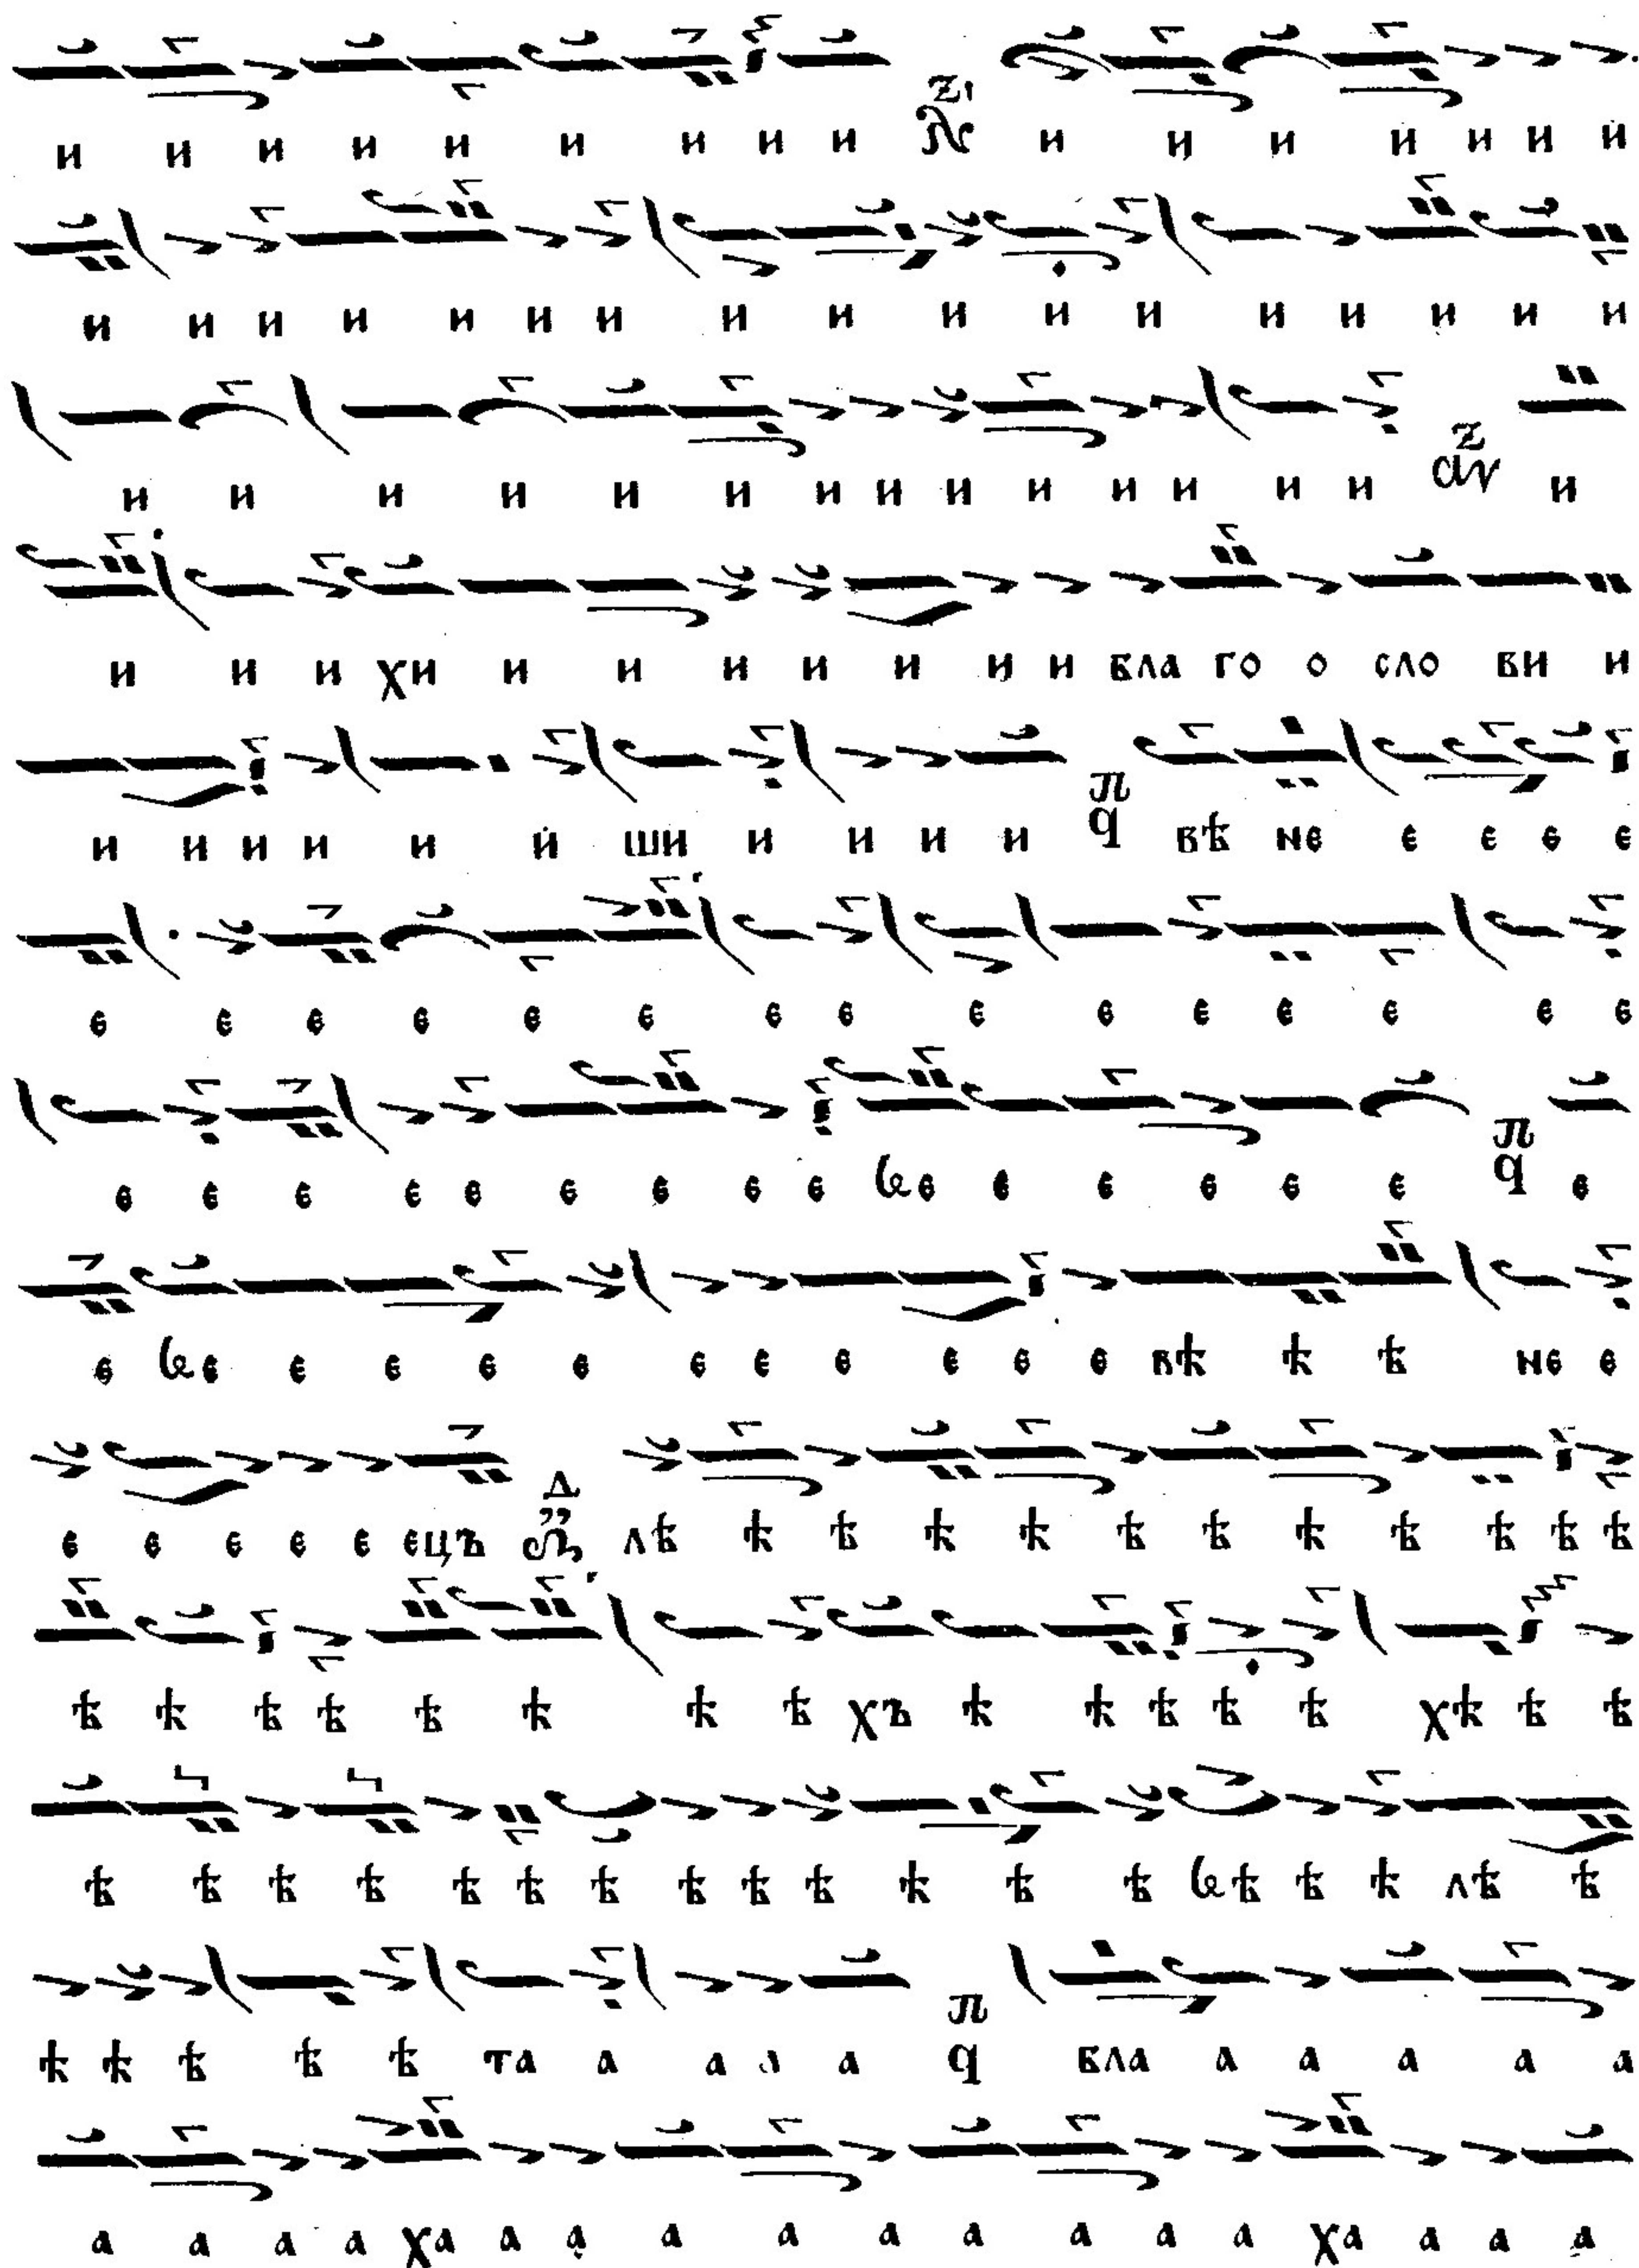 и и и и и и и и и и и и и и и и
и и и и и и и и и и и и и и и и и
и и и и и и и и и и и и и и и
и и и хи и и и и и и и бла го о сло ви и
и и и и и й ши и и и и вѣ не е е е е
е е е е е е е е е е е е е е е
е е е е е е е е е е е е е е е е
е е е е е е е е е е е е вѣ ѣ ѣ не е
е е е е е ецъ лѣ ѣ ѣ ѣ ѣ ѣ ѣ ѣ ѣ ѣ ѣ ѣ
ѣ ѣ ѣ ѣ ѣ ѣ ѣ ѣ хъ ѣ ѣ ѣ ѣ ѣ хѣ ѣ ѣ
ѣ ѣ ѣ ѣ ѣ ѣ ѣ ѣ ѣ ѣ ѣ ѣ ѣ ѣ ѣ ѣ лѣ ѣ
ѣ ѣ ѣ ѣ ѣ та а а а а бла а а а а а
а а а а ха а а а а а а а а а ха а а а